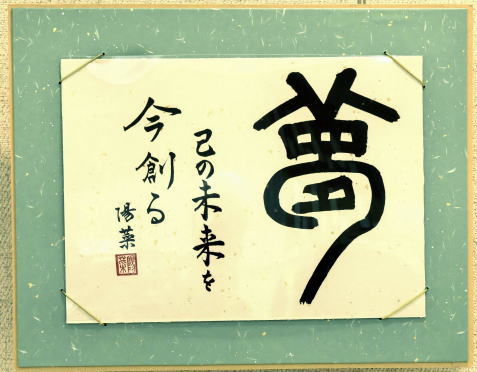 夢
己の未来を
今創る
陽葉